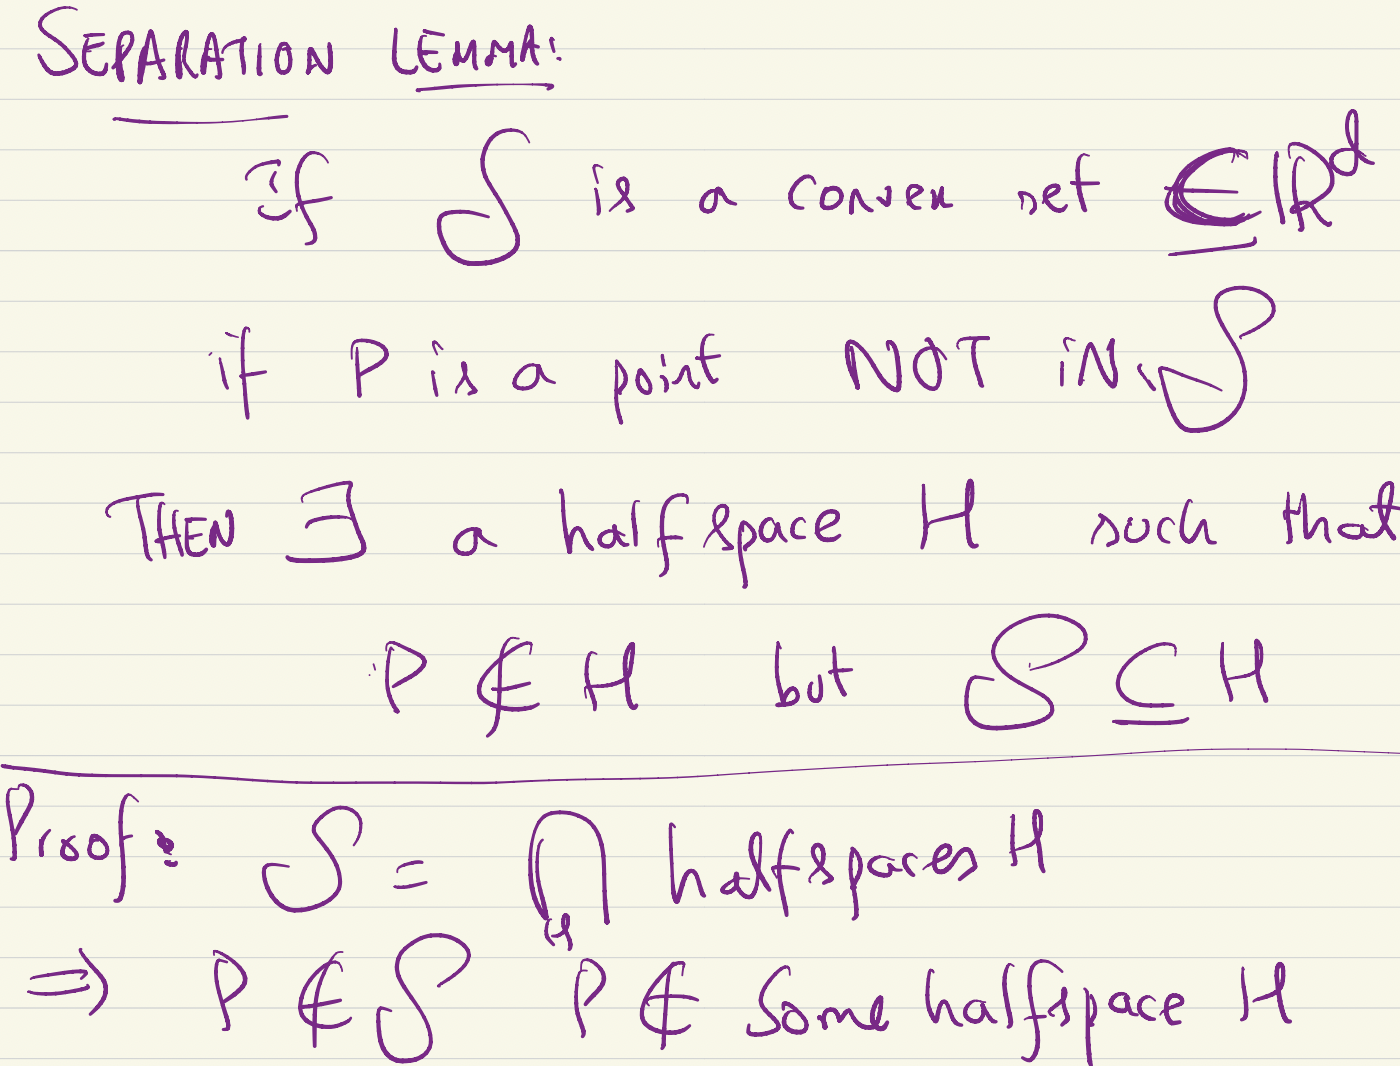 SEPARATION LEMMA:
If S is a convex set ⊆ ℝᵈ
if P is a point NOT IN S
THEN ∃ a halfspace H such that
P ∉ H but S ⊆ H
Proof: S = ⋂_H halfspaces H
⇒ P ∉ S P ∉ Some halfspace H